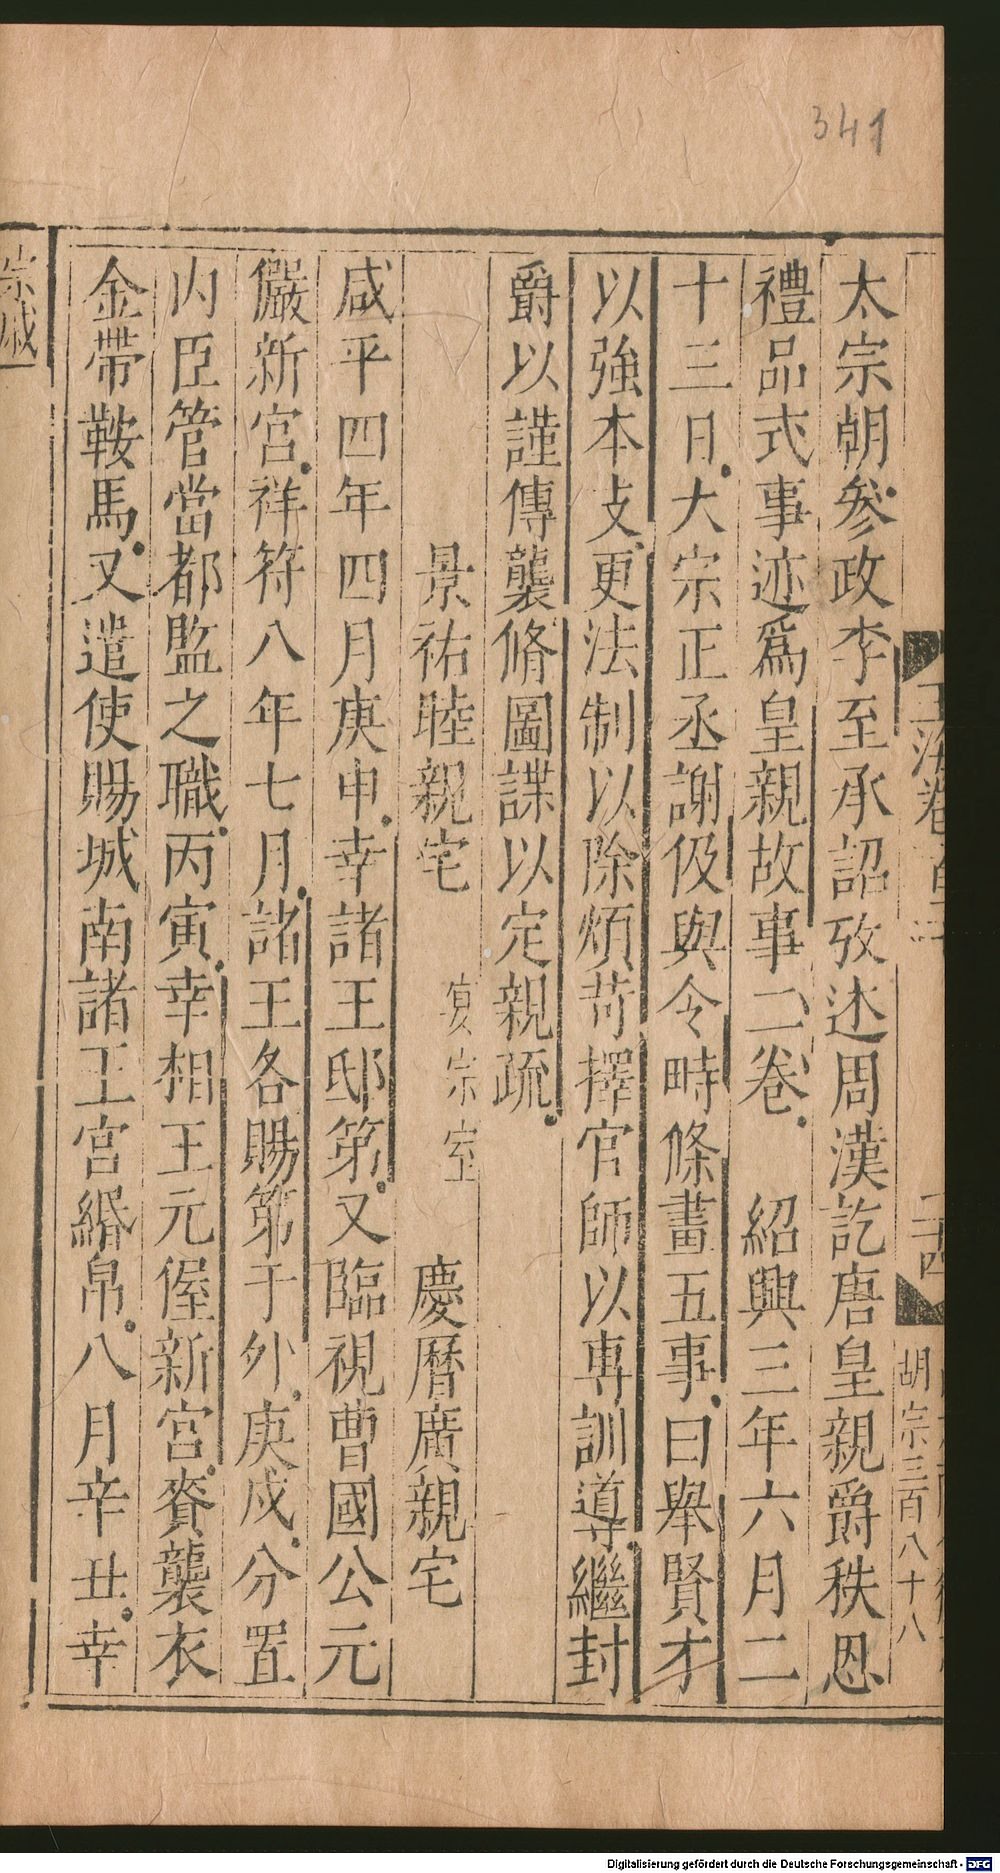 341
玉海卷百三十
二十四
胡宗三百八十八
太宗朝參政李至承詔攷述周漢訖唐皇親爵秩恩
禮品式事迹爲皇親故事二卷 紹興三年六月二
十三日大宗正丞謝伋與令時條畫五事曰舉賢才
以強本支更法制以除煩苛擇官師以專訓導繼封
爵以謹傳襲脩圖諜以定親疏
景祐睦親宅 宴宗室 慶曆廣親宅
咸平四年四月庚申幸諸王邸第又臨視曹國公元
儼新宮祥符八年七月諸王各賜第于外庚戌分置
內臣管當都監之職丙寅幸相王元偓新宮賚襲衣
金帶鞍馬又遣使賜城南諸王宮緡帛八月辛丑幸
宗戚
Digitalisierung gefördert durch die Deutsche Forschungsgemeinschaft - DFG